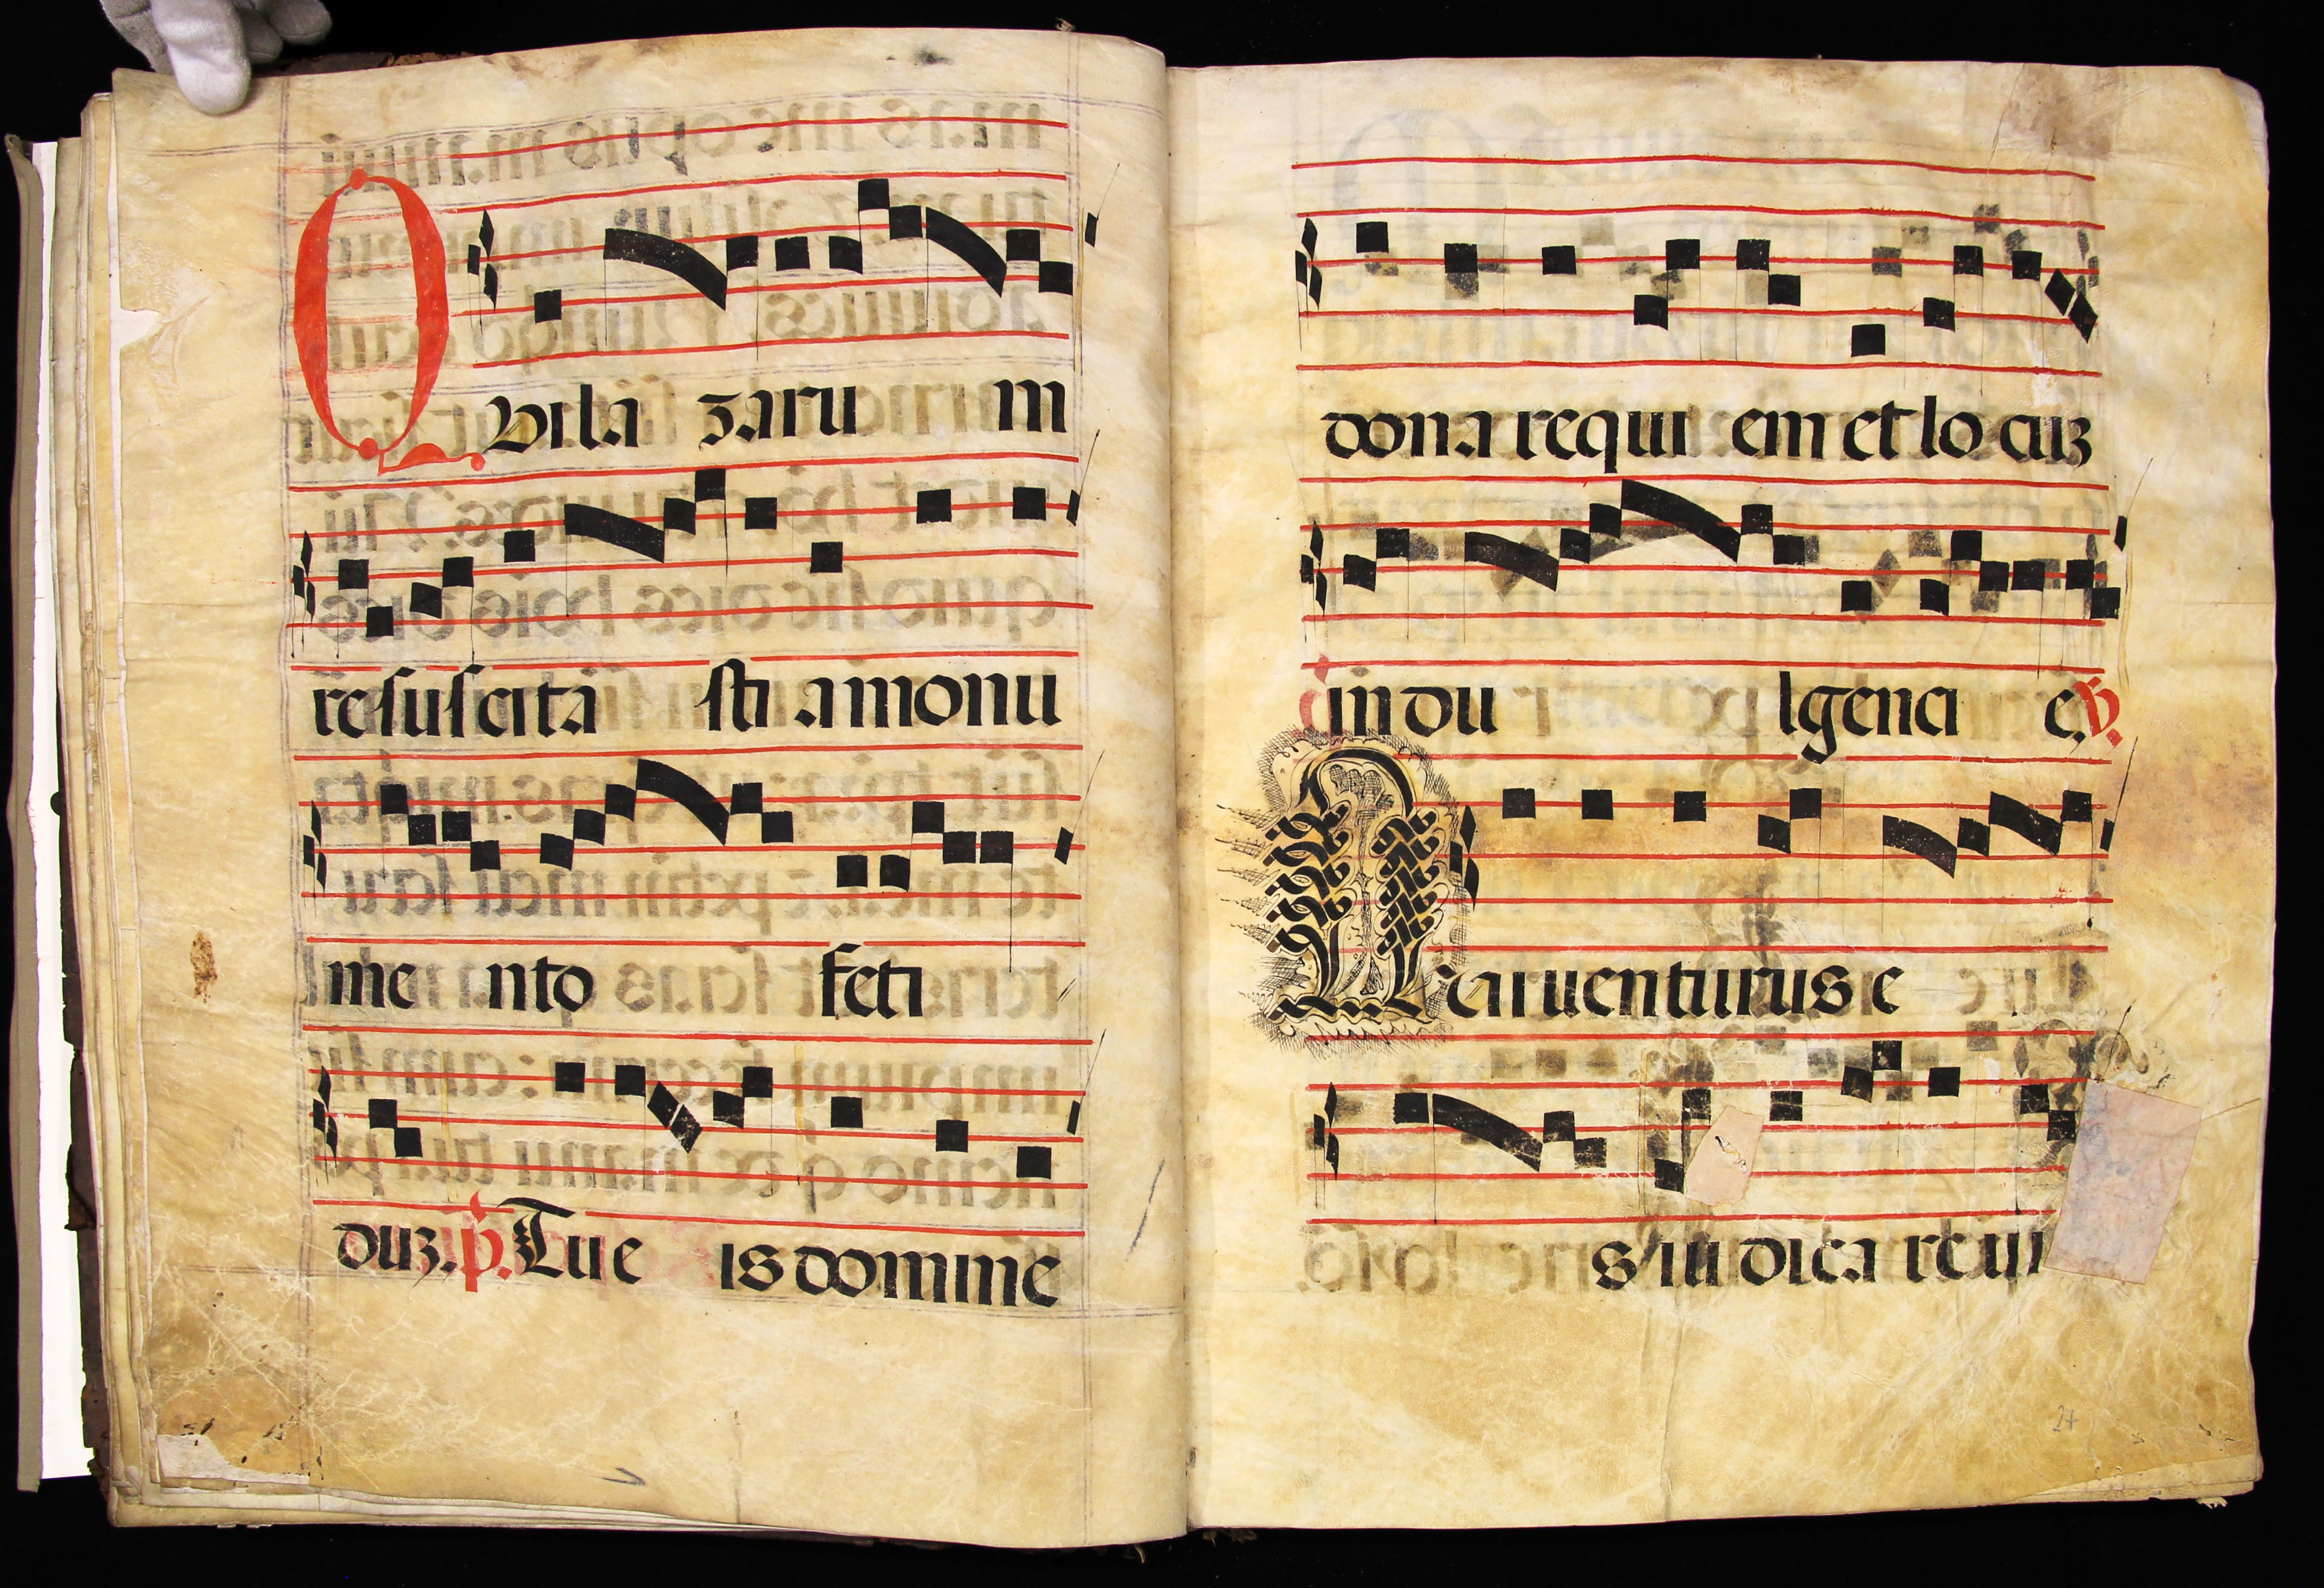 Qvi la zaru m
resuscita sti a monu
me nto feti
duz. p. Tu e is domine
dona requi em et lo cuz
in du lgenci e, v.
Q ui venturus e
s iu dica re
24